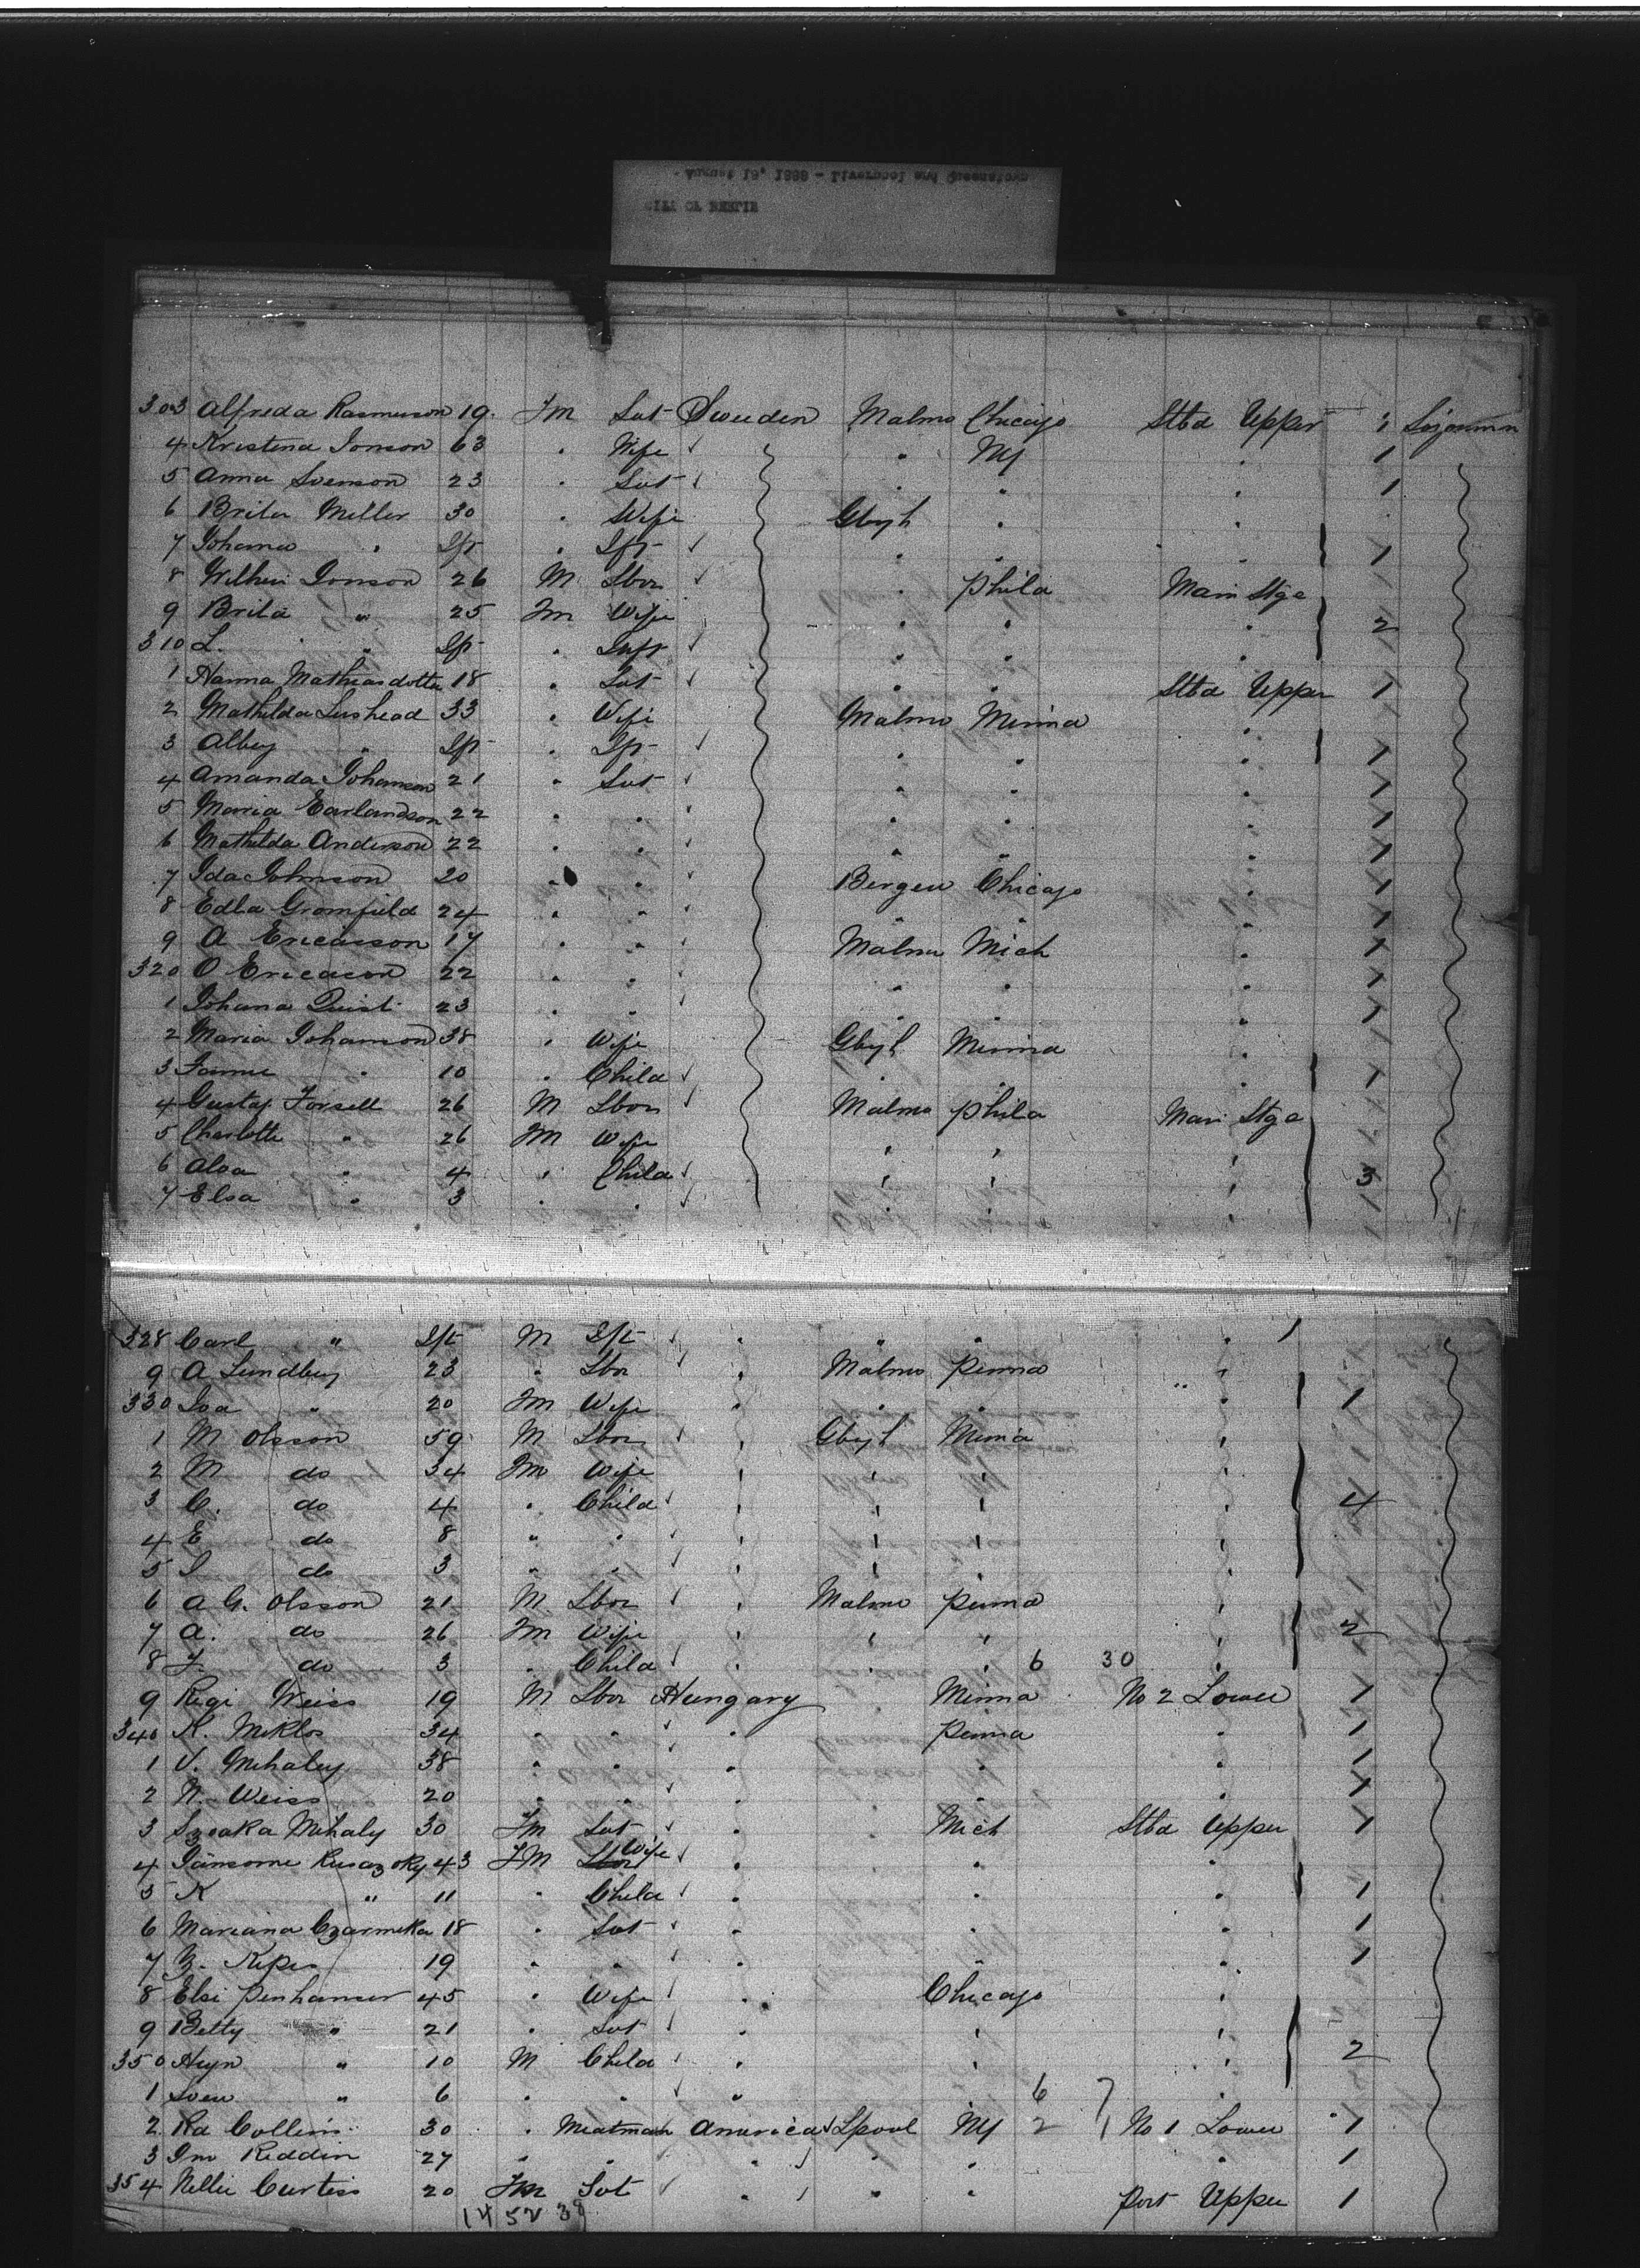 August 19, 1888 - Liverpool and Queenstown
CITY OF BERLIN
303 Alfreda Rasmuson 19. Fm Svt Sweden Malmo Chicago Stbd Upper 1 Sojourner
4 Kristena Jonson 63 " Wife " NY " 1
5 Anna Svenson 23 " Svt " " " 1
6 Brita Miller 30 " Wife Gbgh " "
7 Johanna " Ift " Ift " " " 1
8 Wilhem Jonson 26 M Lbor " Phila Main Stge
9 Brita " 25 Fm Wife " " " 2
310 L. " Ift " Inft " " "
1 Hanna Mathiasdotter 18 " Svt " " Stbd Upper 1
2 Mathilda 33 " Wife Malmo Minna "
3 Alby " Ift " Ift " " " 1
4 Amanda Johanson 21 " Svt " " " 1
5 Maria Earlandson 22 " " " " " 1
6 Mathilda Anderson 22 " " " " " 1
7 Ida Johnson 20 " " Bergen Chicago " 1
8 Edla Gromfield 24 " " " " " 1
9 A Ericasson 17 " " Malmo Mich " 1
320 O Ericason 22 " " " " " 1
1 Johana Quist 23 " " " " " 1
2 Maria Johanson 38 " Wife Gbgh Minna "
3 Fannie " 10 " Child " " " 1
4 Gustaf Forsell 26 M Lbor Malmo Phila Main Stge
5 Charlotte " 26 Fm Wife " " "
6 Alva " 4 " Child " " " 3
7 Elsa " 3 " " " " "
328 Carl " Ift M Ift " " " "
9 A Lundberg 23 " Lbor " Malmo Penna "
330 Iva " 20 Fm Wife " " " " 1
1 M Olsson 59 M Lbor " Gbgh Minna "
2 M do 34 Fm Wife " " " "
3 C. do 4 " Child " " " " 4
4 E do 8 " " " " " "
5 I do 3 " " " " " "
6 A G. Olsson 21 M Lbor " Malmo Penna "
7 A. do 26 Fm Wife " " " " 2
8 J. do 3 " Child " " " 6 30
9 Regi Weiss 19 M Lbor Hungary Minna No 2 Lower 1
340 K. Miklos 34 " " " Penna " 1
1 V. Mihaley 38 " " " " " 1
2 N. Weiss 20 " " " " " 1
3 Szoaka Mihaly 30 Fm Svt " Mich Stbd Upper 1
4 43 Fm Lbor Wife " " "
5 K " 11 " Child " " " 1
6 Mariana Czarmeka 18 " Svt " " " 1
7 Z. Kipes 19 " " " " " 1
8 Elsi Penhamer 45 " Wife " Chicago "
9 Betty " 21 " Svt " " "
350 " 10 M Child " " " 2
1 " 6 " " " 6 7 "
2 Rd Collins 30 " Meatman America Lpool NY 2 1 No 1 Lower 1
3 Jno Reddin 27 " " " " " " 1
354 Nellie Curtiss 20 Fm Svt " " " Port Upper 1
14 52 38